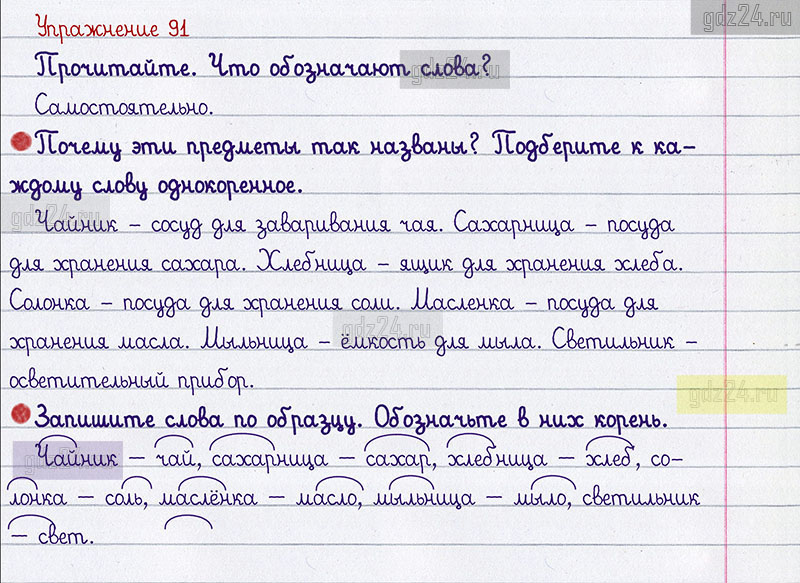 gdz24.ru
Упражнение 91
Прочитайте. Что обозначают слова?
gdz24.ru
Самостоятельно.
Почему эти предметы так названы? Подберите к ка-
ждому слову однокоренное.
gdz24.ru
Чайник – сосуд для заваривания чая. Сахарница – посуда
для хранения сахара. Хлебница – ящик для хранения хлеба.
Солонка – посуда для хранения соли. Масленка – посуда для
gdz24.ru
хранения масла. Мыльница – ёмкость для мыла. Светильник –
осветительный прибор.
gdz24.ru
Запишите слова по образцу. Обозначьте в них корень.
Чайник – чай, сахарница – сахар, хлебница – хлеб, со-
gdz24.ru
лонка – соль, маслёнка – масло, мыльница – мыло, светильник
– свет.